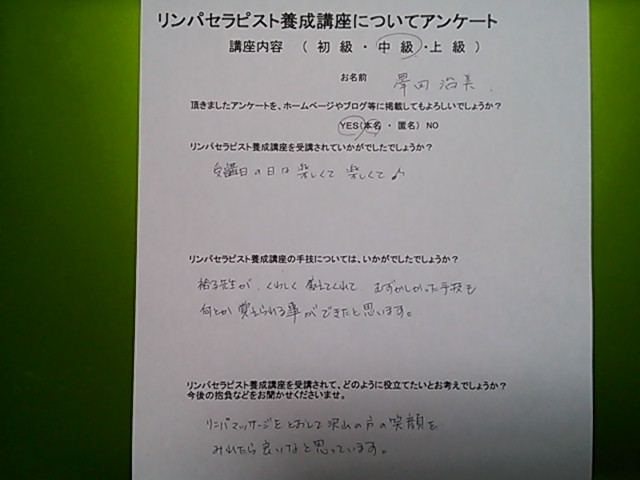 リンパセラピスト養成講座についてアンケート
講座内容 （ 初 級 ・ 中 級 ・上 級 ）
お名前 澤田 治美
頂きましたアンケートを、ホームページやブログ等に掲載してもよろしいでしょうか？
YES（本名 ・ 匿名） NO
リンパセラピスト養成講座を受講されていかがでしたでしょうか？
受講日の日は 楽しくて 楽しくて♪
リンパセラピスト養成講座の手技については、いかがでしたでしょうか？
先生が、くわしく 教えてくれて、むずかしかった手技も
何とか 覚えられる事ができたと思います。
リンパセラピスト養成講座を受講されて、どのように役立てたいとお考えでしょうか？
今後の抱負などをお聞かせくださいませ。
リンパマッサージをとおして沢山の方の笑顔を
みれたら良いなと思っています。